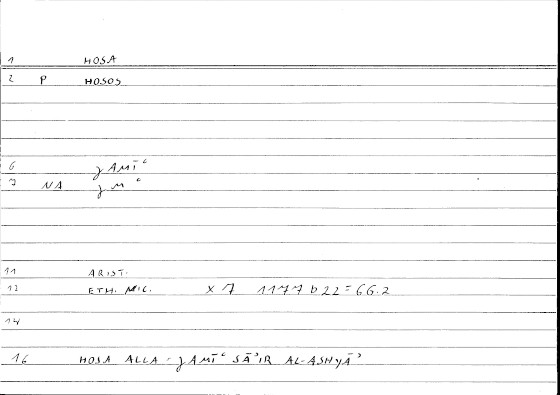 1 HOSA
2 P HOSOS
6 ǧAMĪʿ
7 NA ǧMʿ
11 ARIST.
12 ETH. NIC. X 7 1177 b 22 = 66.2
14
16 HOSA ALLA - ǧAMĪʿ SĀʾIR AL-ASHYĀʾ